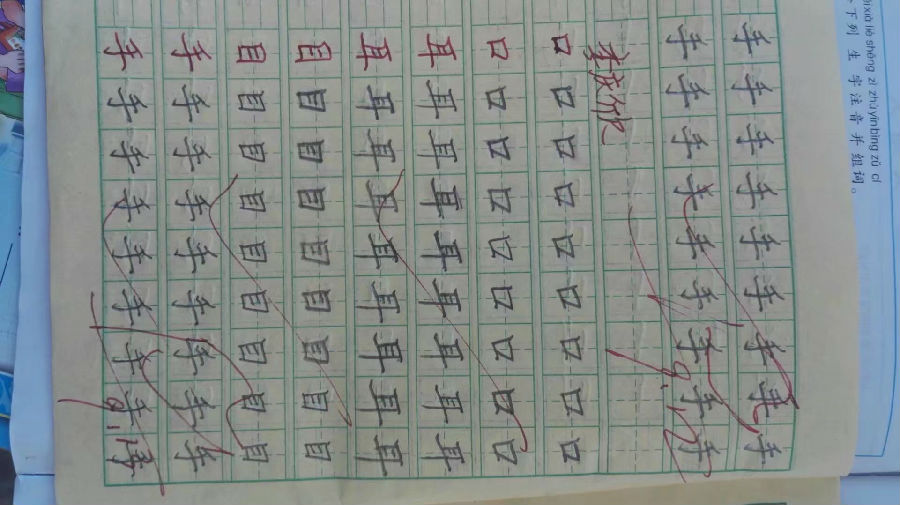 liè shēng zì zhù yīn bìng zǔ cí
下列生字注音并组词。
手手手手手手手手手
手手手手手手手手手
口口口口口口口口口
口口口口口口口口口
耳耳耳耳耳耳耳耳耳
耳耳耳耳耳耳耳耳耳
目目目目目目目目目
目目目目目目目目目
手手手手手手手手手
手手手手手手手手